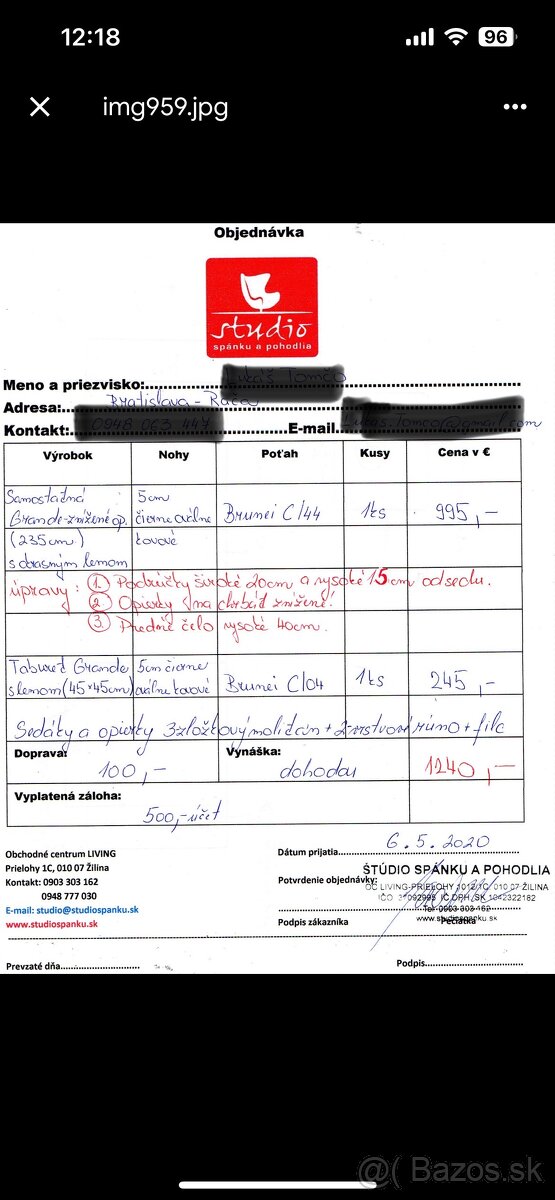 12:18
96
img959.jpg
Objednávka
studio
spánku a pohodlia
Meno a priezvisko:
Adresa: Bratislava - Rača
Kontakt: E-mail
Výrobok Nohy Poťah Kusy Cena v €
Samostatná 5cm
Grande-znížené op. čierne oválne Brunei C/44 1ks 995,-
(235cm) kovové
s okrasným lemom
úpravy: ① Podrúčky široké 20cm a vysoké 15cm od sedu.
② Opierky na chrbát znížené!
③ Predné čelo vysoké 40cm.
Taburet Grande 5cm čierne
s lemom (45×45cm) oválne kovové Brunei C/04 1ks 245,-
Sedáky a opierky 3zložkový molitan + 2-vrstvové rúno + filc
Doprava: Vynáška:
100,- dohodou 1240,-
Vyplatená záloha:
500,- účet
Obchodné centrum LIVING
Prielohy 1C, 010 07 Žilina
Kontakt: 0903 303 162
0948 777 030
E-mail: studio@studiospanku.sk
www.studiospanku.sk
Dátum prijatia 6.5.2020
Potvrdenie objednávky:
ŠTÚDIO SPÁNKU A POHODLIA
OC LIVING-PRIELOHY 1012/1C, 010 07 ŽILINA
Tel. 0903 303 162
www.studiospanku.sk
Podpis zákazníka Pečiatka
Prevzaté dňa Podpis
@( Bazos.sk